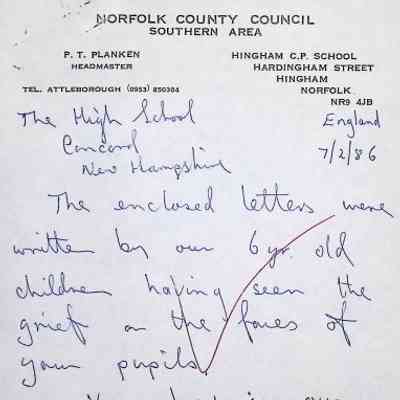 NORFOLK COUNTY COUNCIL
SOUTHERN AREA
P. T. PLANKEN
HEADMASTER
HINGHAM C.P. SCHOOL
HARDINGHAM STREET
HINGHAM
NORFOLK
NR9 4JB
TEL. ATTLEBOROUGH (0953) 850304
The High School
Concord
New Hampshire
England
7/2/86
The enclosed letters were
written by our 6 yr. old
children having seen the
grief on the faces of
your pupils.